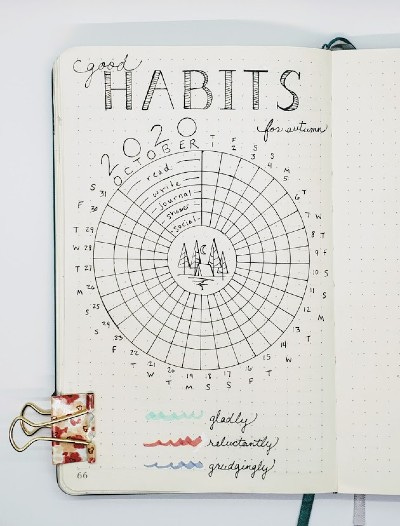 good
HABITS
for autumn
2020
OCTOBER
read
write
journal
shower
social
T 1
F 2
S 3
S 4
M 5
T 6
W 7
T 8
F 9
S 10
S 11
M 12
T 13
W 14
T 15
F 16
S 17
S 18
M 19
T 20
W 21
T 22
F 23
S 24
S 25
M 26
T 27
W 28
T 29
F 30
S 31
gladly
reluctantly
grudgingly
66